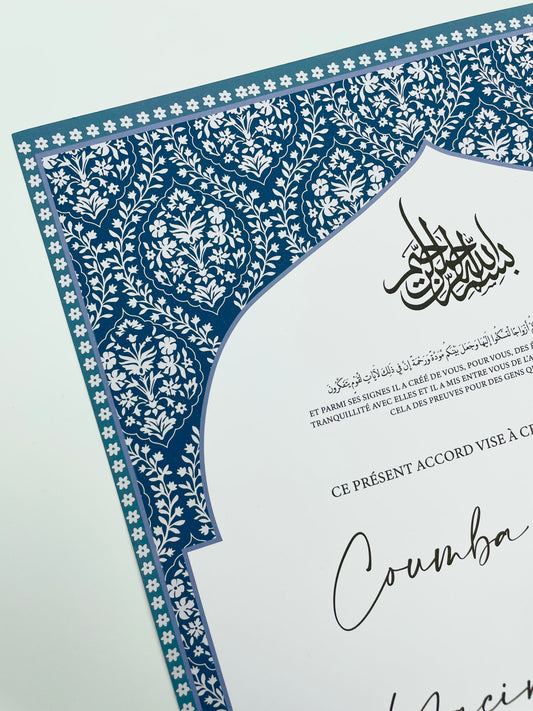 بسم الله الرحمن الرحيم
أزواجا لتسكنوا إليها وجعل بينكم مودة ورحمة إن في ذلك لآيات لقوم يتفكرون
ET PARMI SES SIGNES IL A CRÉÉ DE VOUS, POUR VOUS, DES É
TRANQUILLITÉ AVEC ELLES ET IL A MIS ENTRE VOUS DE L'A
CELA DES PREUVES POUR DES GENS QU
CE PRÉSENT ACCORD VISE À CE
Coumba